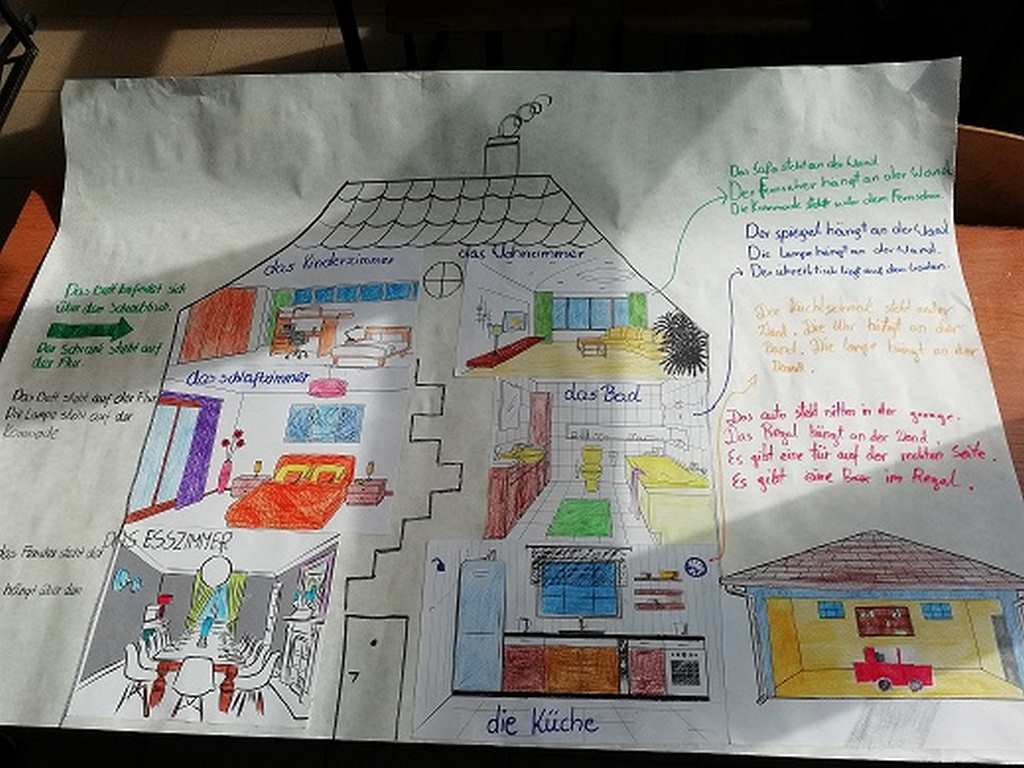 das Kinderzimmer
das Wohnzimmer
das schlafzimmer
das Bad
DAS ESSZIMMER
die Küche
Das Bett befindet sich
über dem Schreibtisch.
Der Schrank steht auf
der Flur.
Das Bett steht auf der Flur
Die Lampe steht auf der
Kommode
das Fenster steht auf
hängt über den
Das Sofa steht an der Wand
Der Fernseher hängt an der Wand
Die Kommode steht unter dem Fernseher.
Der spiegel hängt an der Wand
Die Lampe hängt an der Wand.
Der liegt auf dem boden.
Der steht an der
Wand. Die Uhr hängt an der
Wand. Die lampe hängt an der
Wand.
Das auto steht mitten in der garage.
Das Regal hängt an der Wand.
Es gibt eine tür auf der rechten Seite.
Es gibt eine Box im Regal.